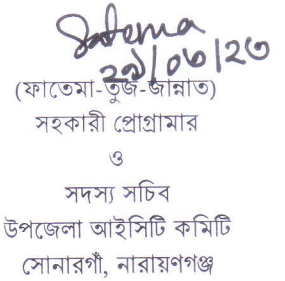 Fatema
২৯/০৮/২৩
(ফাতেমা-তুজ-জান্নাত)
সহকারী প্রোগ্রামার
ও
সদস্য সচিব
উপজেলা আইসিটি কমিটি
সোনারগাঁ, নারায়ণগঞ্জ